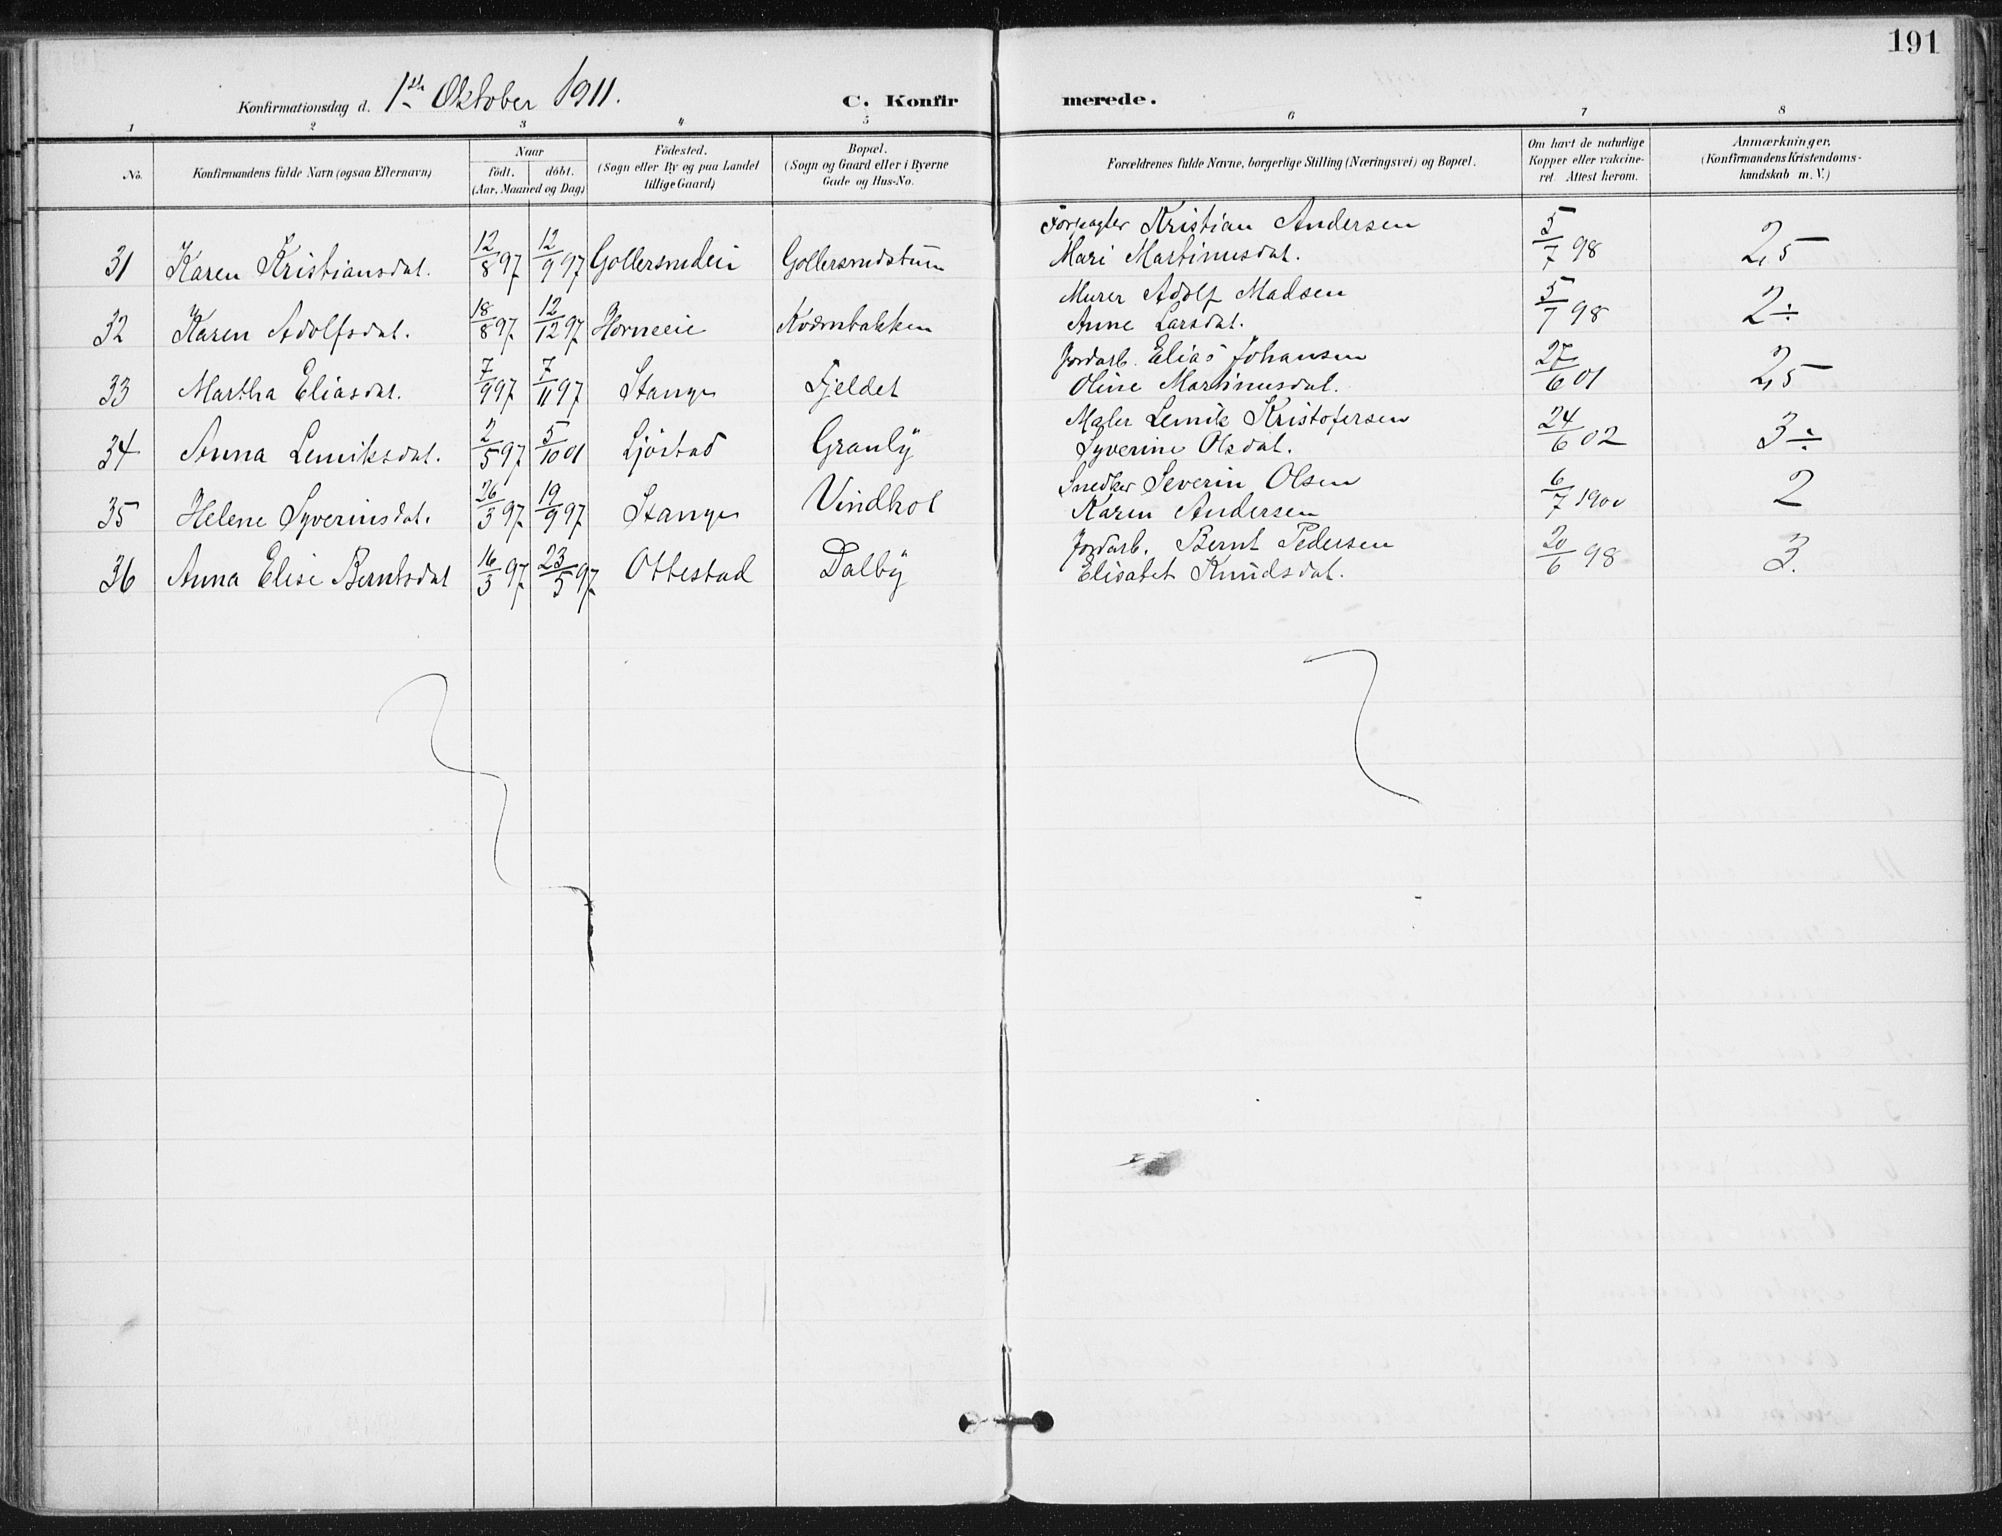 191
Konfirmationsdag d. 1ste Oktober 1911. C. Konfirmerede.
1 2 3 4 5 6 7 8
No. Konfirmandens fulde Navn (ogsaa Efternavn) Naar født. døbt. (Aar, Maaned og Dag) Fødested. (Sogn eller By og paa Landet tillige Gaard) Bopæl. (Sogn og Gaard eller i Byerne Gade og Hus-No. Forældrenes fulde Navne, borgerlige Stilling (Næringsvei) og Bopæl. Om havt de naturlige Kopper eller vakcineret. Attest herom. Anmærkninger. (Konfirmandens Kristendomskundskab m. V.)
31 Karen Kristiansdat. 12/8 97 12/9 97 Gollersrudeie Gollersrudstuen Forpagter Kristian Andersen 5/7 98 2,5
Mari Martinusdat.
32 Karen Adolfsdat. 18/8 97 12/12 97 Horneeie Kværnbakken Murer Adolf Madsen 5/7 98 2÷
Anne Larsdat.
33 Martha Eliasdat. 7/9 97 7/11 97 Stange Fjeldet Jordarb. Elias Johansen 27/6 01 2,5
Oline Martinusdat.
34 Anna Lemiksdat. 2/5 97 5/10 01 Ljøstad Granly Maler Lemik Kristofersen 24/6 02 3÷
Syverine Olsdat.
35 Helene Syverinsdat. 26/3 97 19/9 97 Stange Vindhol Snedker Severin Olsen 6/7 1900 2
Karen Andersen
36 Anna Elise Berntsdat 16/3 97 23/5 97 Ottestad Dalby Jordarb. Bernt Pedersen 20/6 98 3.
Elisabet Knudsdat.